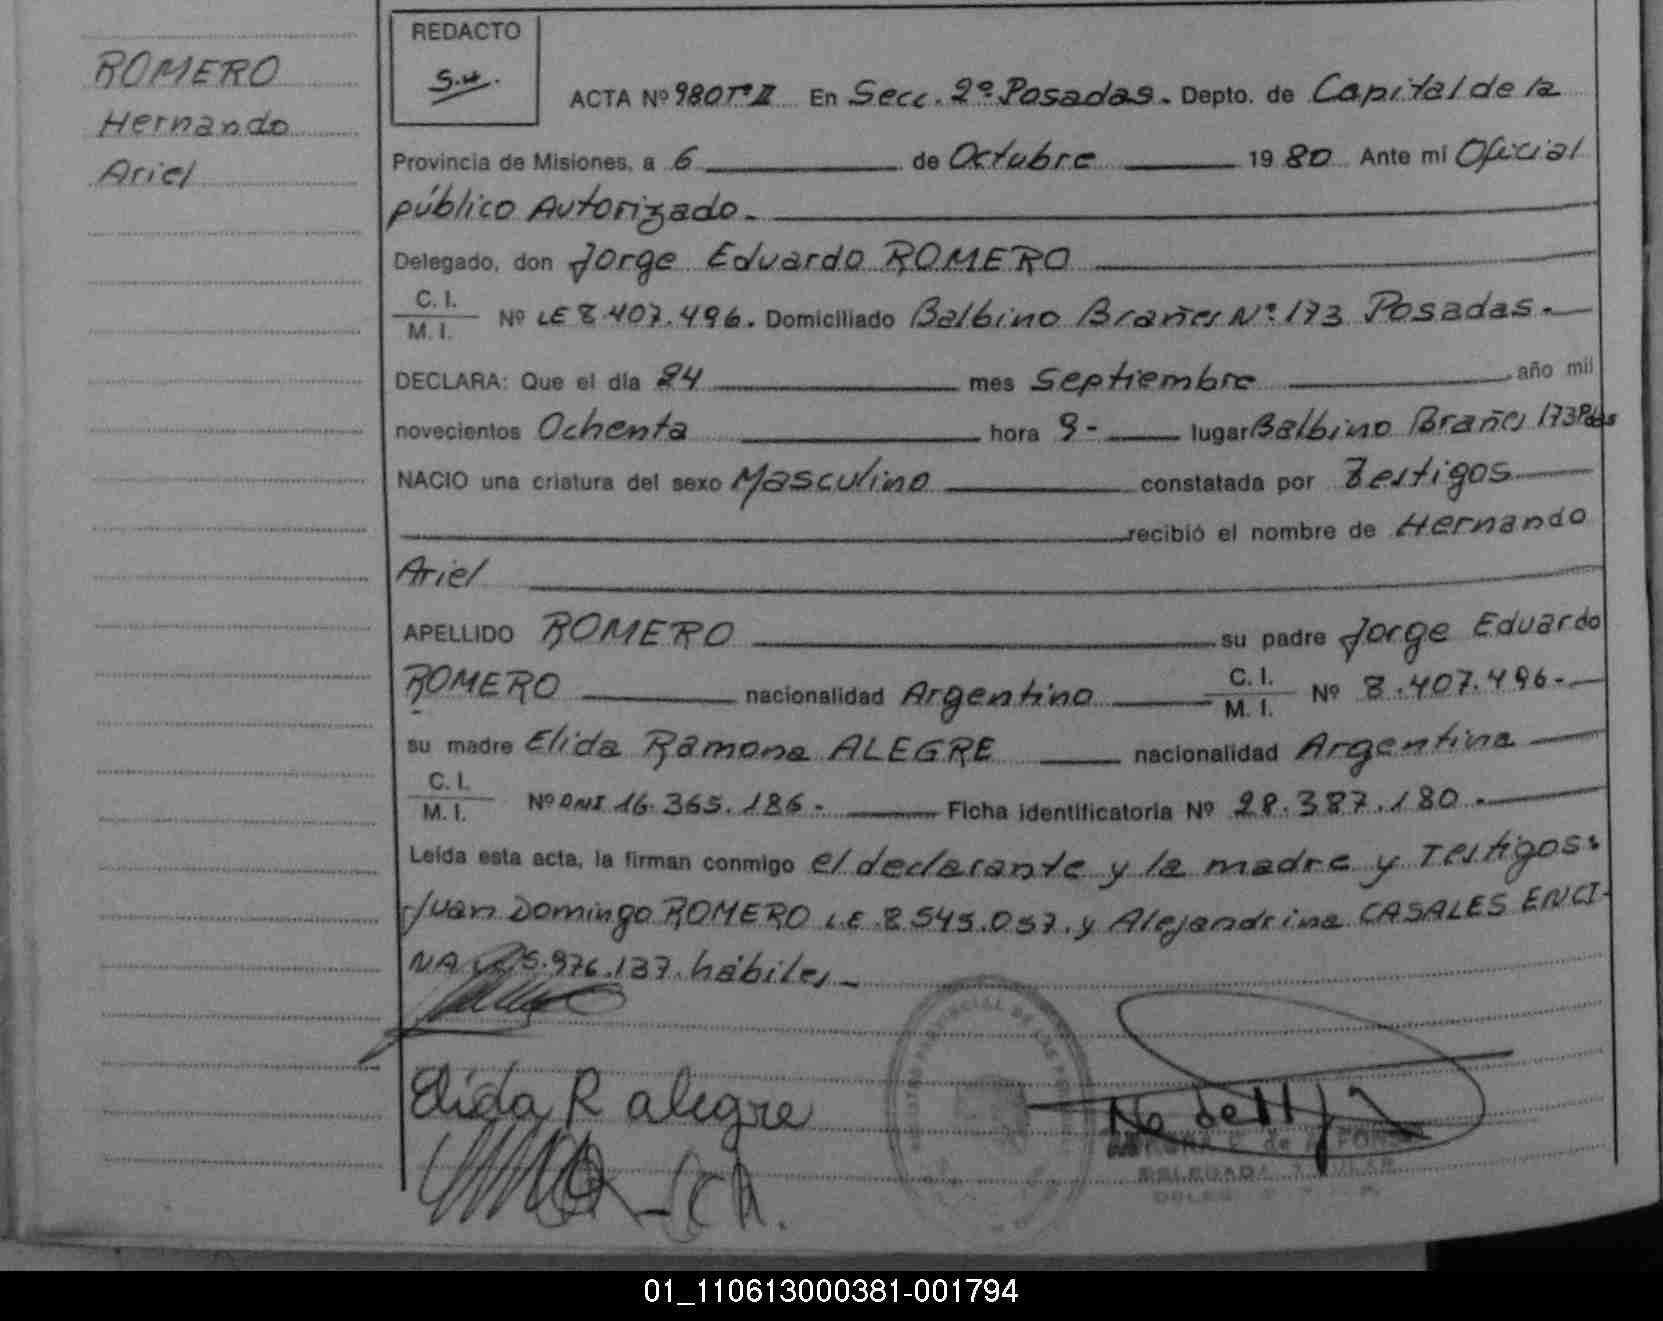 ROMERO
Hernando
Ariel
REDACTO
ACTA Nº 980 Tº II En Secc. 2º Posadas. Depto. de Capital de la
Provincia de Misiones, a 6 de Octubre 1980 Ante mi Oficial
público Autorizado.
Delegado, don Jorge Eduardo ROMERO
C. I.
M. I. Nº LE 8.407.496. Domiciliado Balbino Brañes Nº 173 Posadas.
DECLARA: Que el día 24 mes Septiembre año mil
novecientos Ochenta hora 9- lugar Balbino Brañes 173 Pdas
NACIO una criatura del sexo Masculino constatada por Testigos
recibió el nombre de Hernando
Ariel
APELLIDO ROMERO su padre Jorge Eduardo
ROMERO nacionalidad Argentino C. I. M. I. Nº 8.407.496-
su madre Elida Ramona ALEGRE nacionalidad Argentina
C. I.
M. I. Nº DNI 16.365.186- Ficha identificatoria Nº 28.387.180-
Leída esta acta, la firman conmigo el declarante y la madre y Testigos:
Juan Domingo ROMERO L.E 8.545.057. y Alejandrina CASALES ENCI-
NA 5.976.137. hábiles
Elida R alegre
DELEGADA TITULAR
01_110613000381-001794